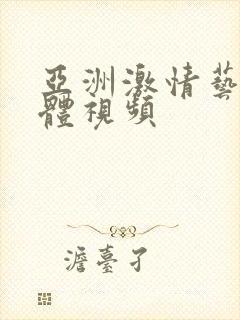 亞洲激情藝
體視頻
澹臺孑